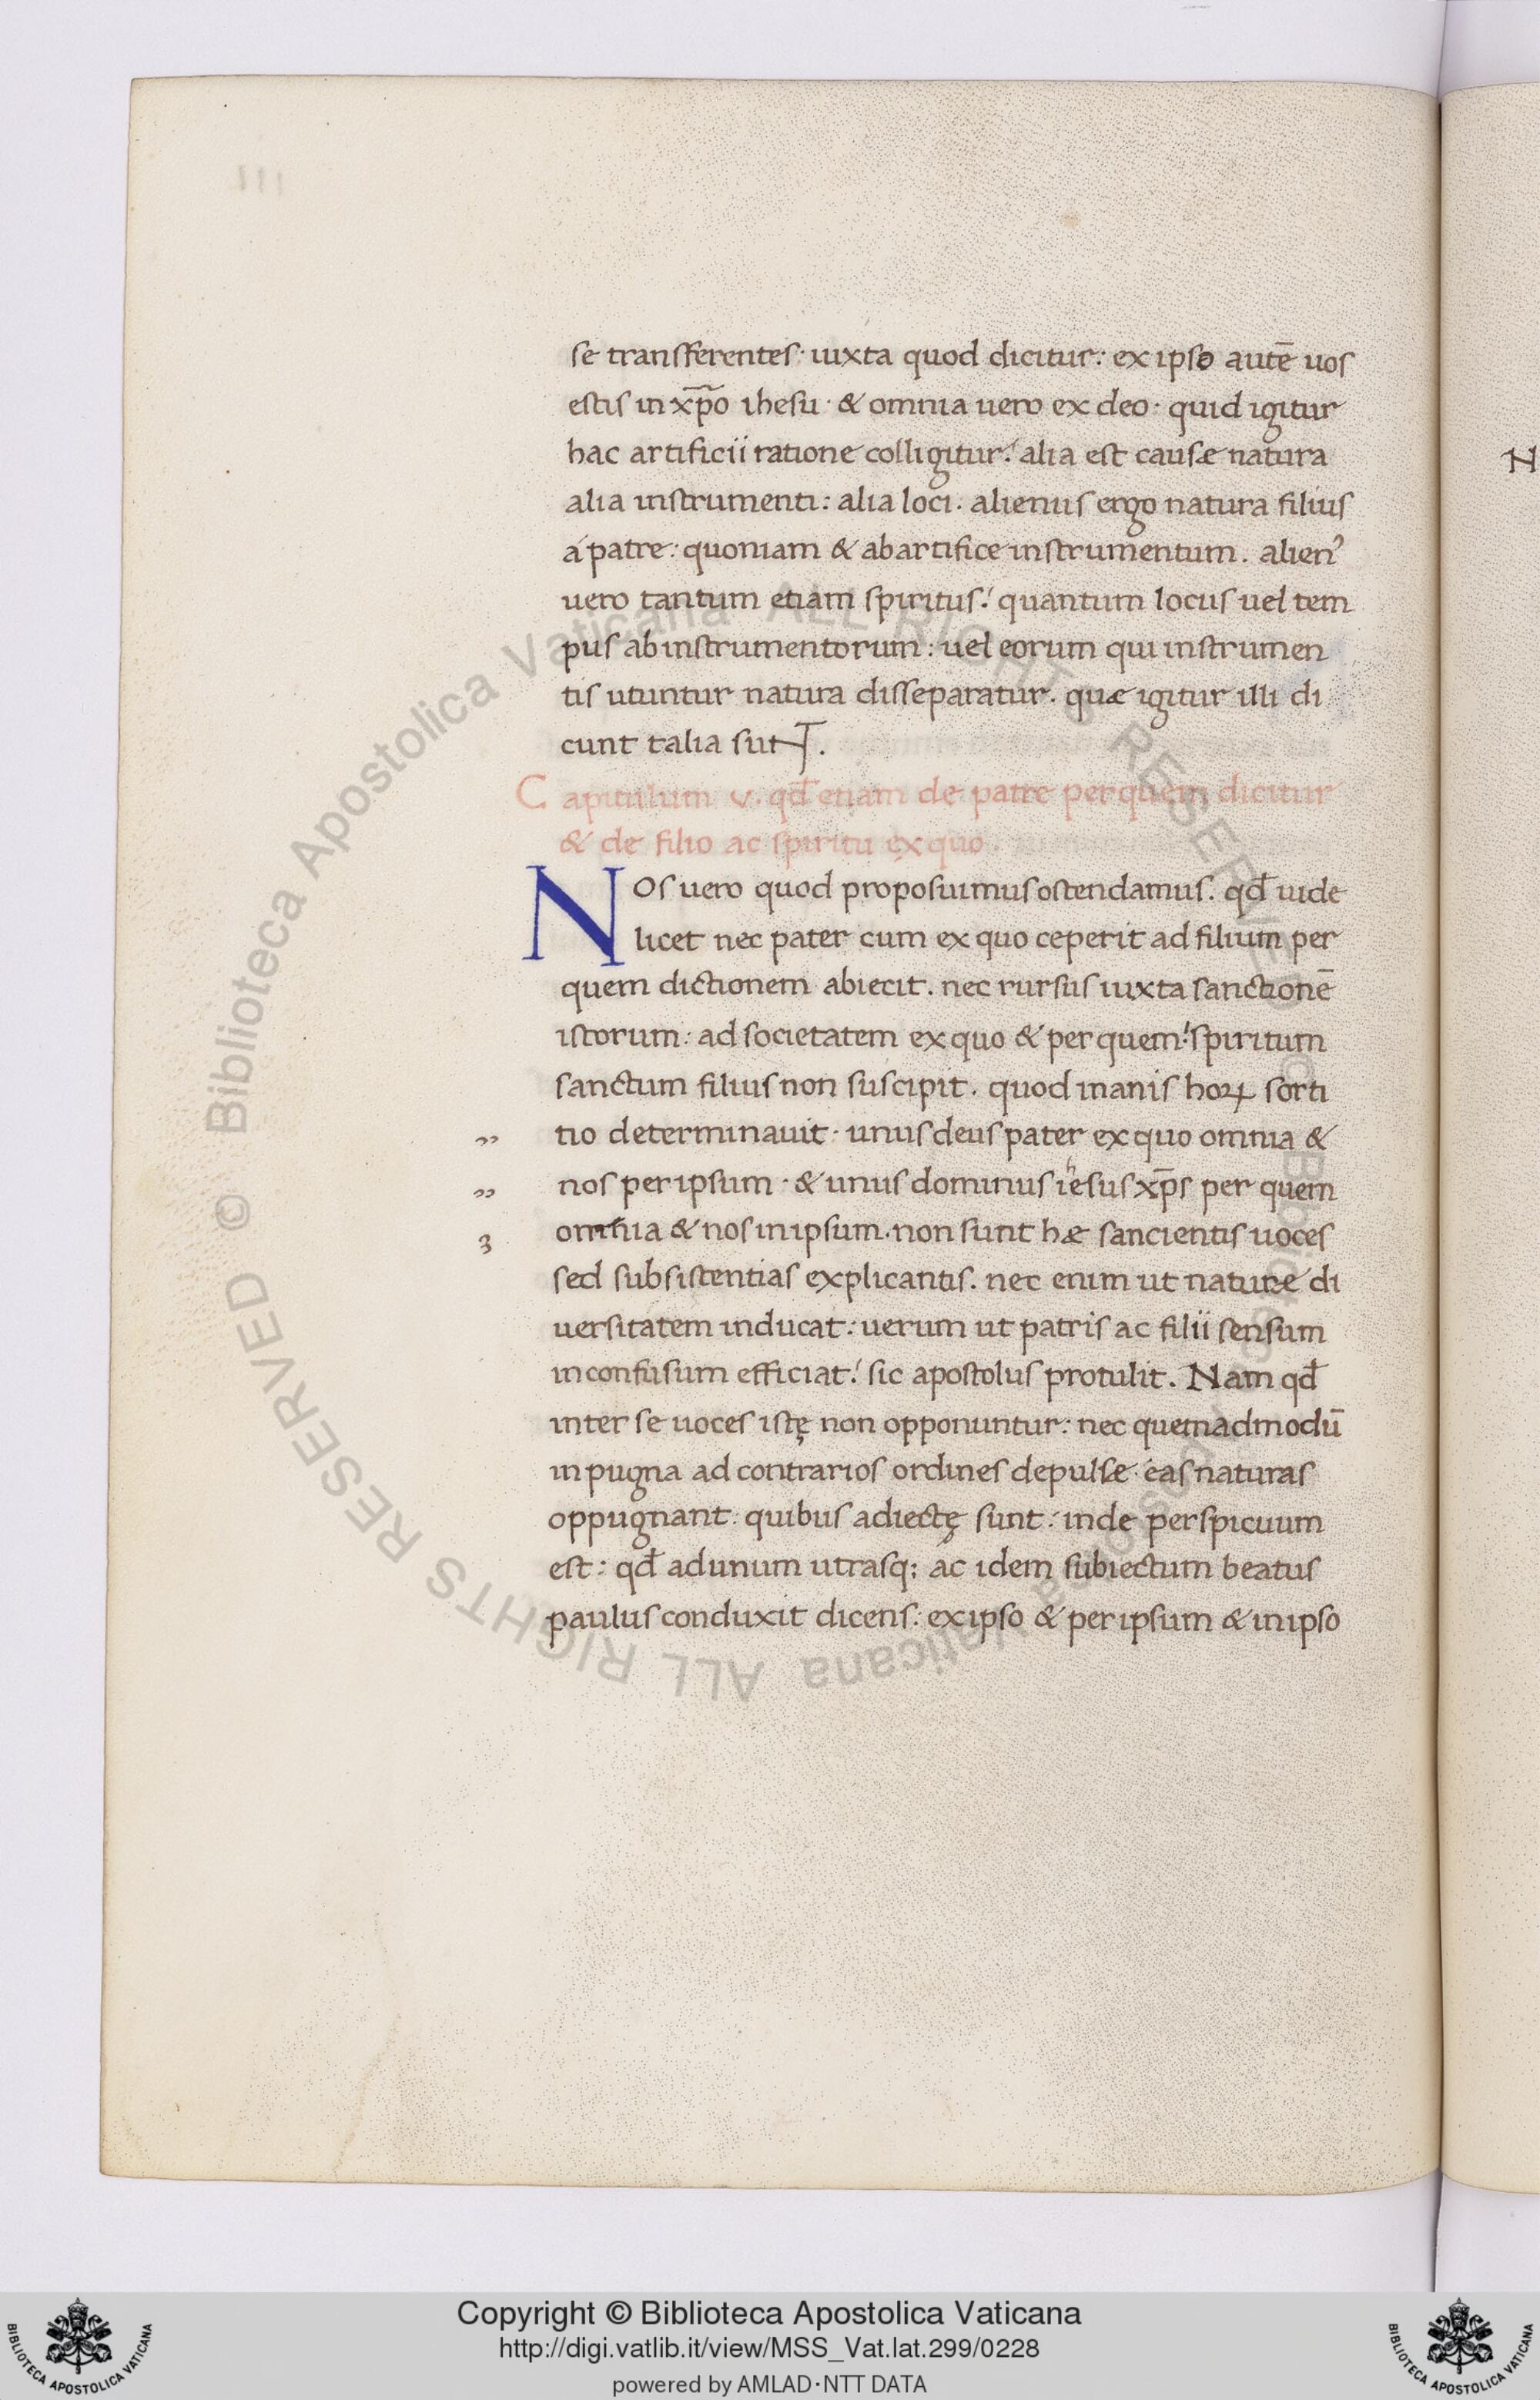 se transferentes· iuxta quod dicitur: ex ipso autē uos
estis in xp̄o ihesu· & omnia uero ex deo· quid igitur
hac artificii ratione colligitur? alia est causæ natura
alia instrumenti: alia loci. alienus ergo natura filius
á patre: quoniam & ab artifice instrumentum. alienꝰ
uero tantum etiam spiritus? quantum locus uel tem
pus ab instrumentorum: uel eorum qui instrumen
tis utuntur natura disseparatur. quæ igitur illi di
cunt talia sunt.
Capitulum v. qđ etiam de patre per quem dicitur
& de filio ac spiritu ex quo.
NOs uero quod proposuimus ostendamus. qđ uide
licet nec pater cum ex quo ceperit ad filium per
quem dictionem abiecit. nec rursus iuxta sanctionē
istorum: ad societatem ex quo & per quem? spiritum
sanctum filius non suscipit. quod inanis hoꝝ sorti
tio determinauit· unus deus pater ex quo omnia &
nos per ipsum· & unus dominus ihesus xp̄s per quem
omnia & nos in ipsum. non sunt hæ sancientis uoces
sed subsistentias explicantis. nec enim ut naturæ di
uersitatem inducat: uerum ut patris ac filii sensum
inconfusum efficiat? sic apostolus protulit. Nam qđ
inter se uoces istę non opponuntur: nec quemadmodū
in pugna ad contrarios ordines depulsæ· eas naturas
oppugnant: quibus adiectę sunt: inde perspicuum
est: qđ ad unum utrasq; ác idem subiectum beatus
paulus conduxit dicens: ex ipso & per ipsum & in ipso
N
Biblioteca Apostolica Vaticana ALL RIGHTS RESERVED ©
Biblioteca Apostolica Vaticana ALL RIGHTS RESERVED ©
Copyright © Biblioteca Apostolica Vaticana
http://digi.vatlib.it/view/MSS_Vat.lat.299/0228
powered by AMLAD·NTT DATA
BIBLIOTECA APOSTOLICA VATICANA
BIBLIOTECA APOSTOLICA VATICANA